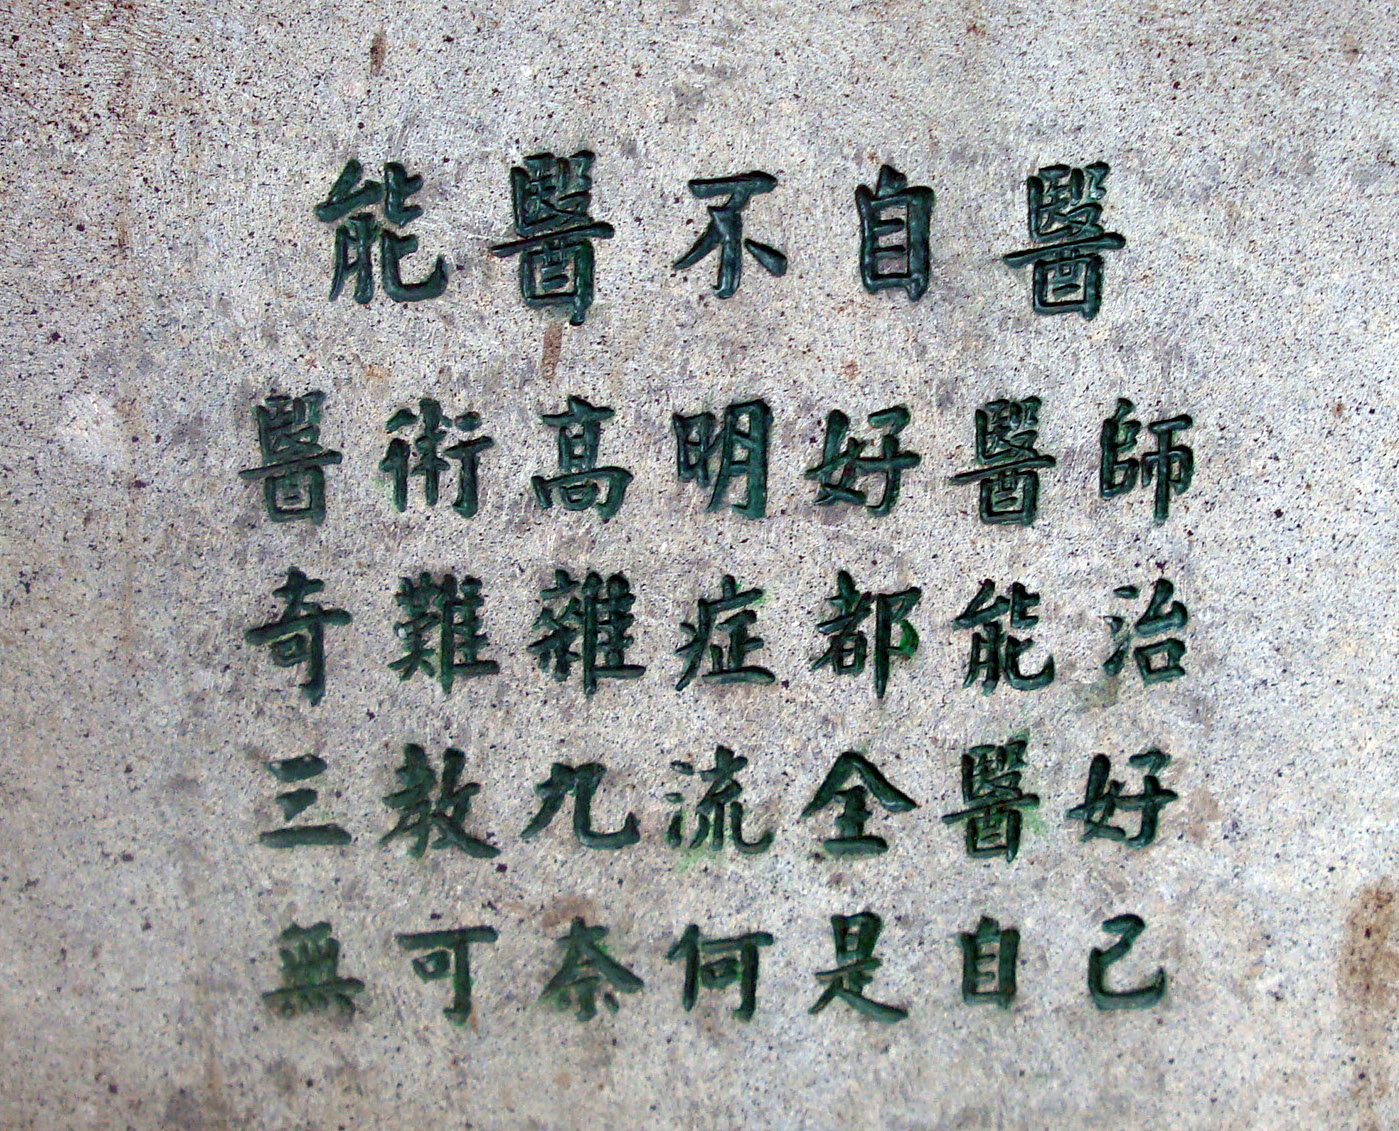 能醫不自醫
醫術高明好醫師
奇難雜症都能治
三教九流全醫好
無可奈何是自己